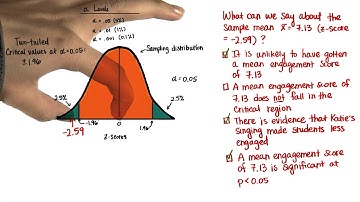 α Levels
α = .05 (5%)
α = .01 (1%)
α = .001 (0.1%)
Two-tailed
Critical values at α=0.05:
±1.96
Sampling distribution
α=0.05
2.5%
2.5%
-1.96
0
1.96
-2.59
Z-scores
What can we say about the
sample mean x̄=7.13 (z-score
= -2.59) ?
It is unlikely to have gotten
a mean engagement score
of 7.13
A mean engagement score of
7.13 does not fall in the
critical region
There is evidence that Katie's
singing made students less
engaged
A mean engagement score
of 7.13 is significant at
p<0.05